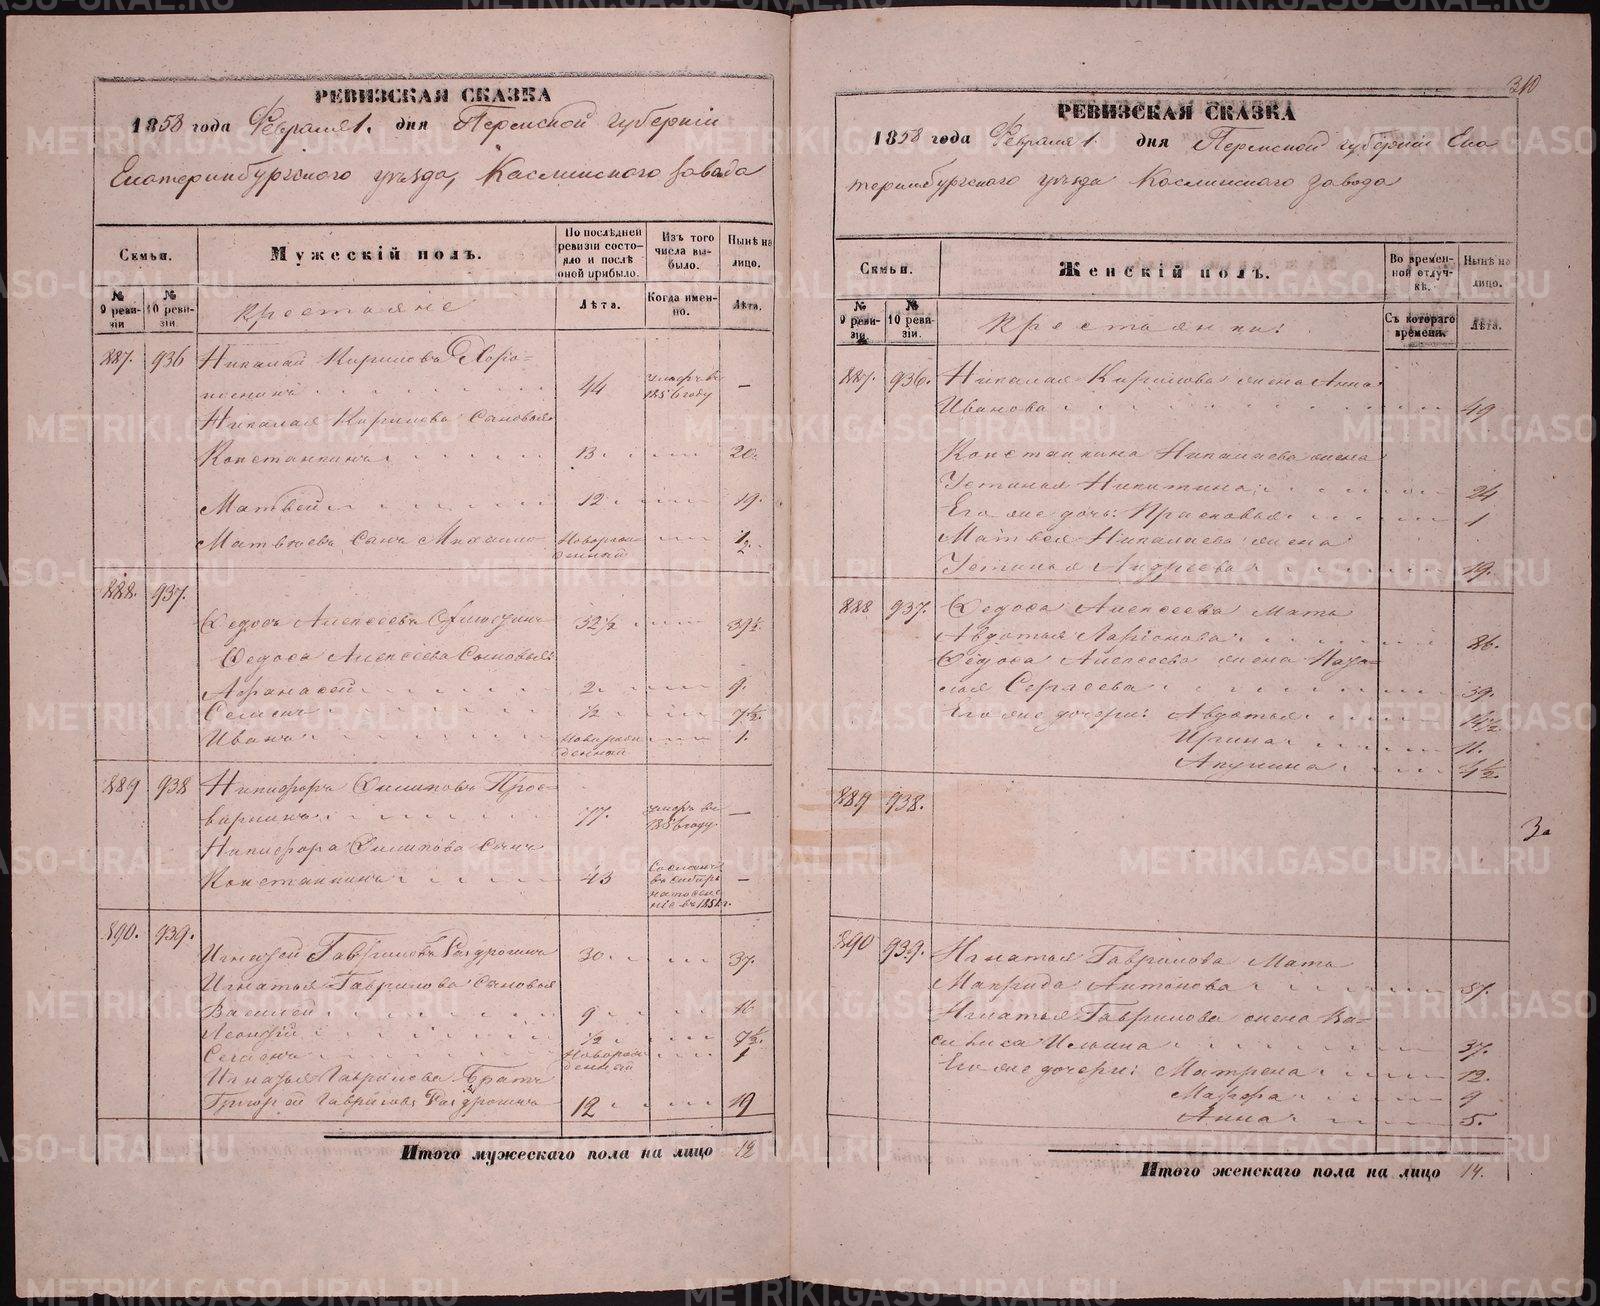 РЕВИЗСКАЯ СКАЗКА
1858 года Февраля 1. дня Пермской губерніи
Екатеринбургскаго уѣзда, Каслинскаго завода
Семьи.
Мужескій полъ.
По послѣдней ревизіи состояло и послѣ оной прибыло.
Изъ того числа выбыло.
Нынѣ на лицо.
№ 9 ревизіи
№ 10 ревизіи.
Крестьяне
Лѣта.
Когда именно.
Лѣта.
887. 936 Николай Кириловъ
44 умеръ въ 1856 году —
Николая Кирилова сыновья
Констанкинъ 13 20.
Матвей 12 19.
Матвѣевъ сынъ Михаило Новорожденный ½
888. 937.
Федосъ Алексѣевъ 32½ 39½
Федоса Алексѣева сыновья:
Афанасей 2 9.
Семенъ ½ 7½.
Иванъ Новорожденный 1.
889 938 Никифоръ Филиповъ Просвирнинъ 77. умеръ въ 1856 году —
Никифора Филипова сынъ
Констанкинъ 43 Сосланъ въ Сибирь на поселеніе въ 185 г. —
890. 939.
Игнатей Гавриловъ 30 37.
Игнатья Гаврилова сыновья
Василей 9 16
Леонтій ½ 7½.
Семенъ Новорожденный 1
Игнатья Гаврилова братъ
Григорей Гавриловъ 12 19
Итого мужескаго пола на лицо 12
310
РЕВИЗСКАЯ СКАЗКА
1858 года Февраля 1. дня Пермской губерніи Ека
теринбургскаго уѣзда Каслинскаго завода
Семьи.
Женскій полъ.
Во временной отлучкѣ.
Нынѣ на лицо.
№ 9 ревизіи.
№ 10 ревизіи.
Крестьянки:
Съ котораго времени.
Лѣта.
887. 936. Николая Кирилова жена Анна
Иванова 49
Констанкина Николаева жена
Устинья Никитина 24
Его же дочь: Прасковья 1
Матвея Николаева жена
Устинья Андреева 19.
888 937. Федоса Алексѣева мать
Авдотья Ларіонова 86.
Федоса Алексѣева жена Ната-
лья Сергѣева 39.
Его же дочери: Авдотья 14½
Ирина 11.
Акулина 4½.
889 938.
За
890 939. Игнатья Гаврилова мать
Макрида Антонова 57.
Игнатья Гаврилова жена Ва-
силиса Ильина 37.
Его же дочери: Матрена 12.
Марфа 9
Анна 5.
Итого женскаго пола на лицо 14.
METRIKI.GASO-URAL.RU